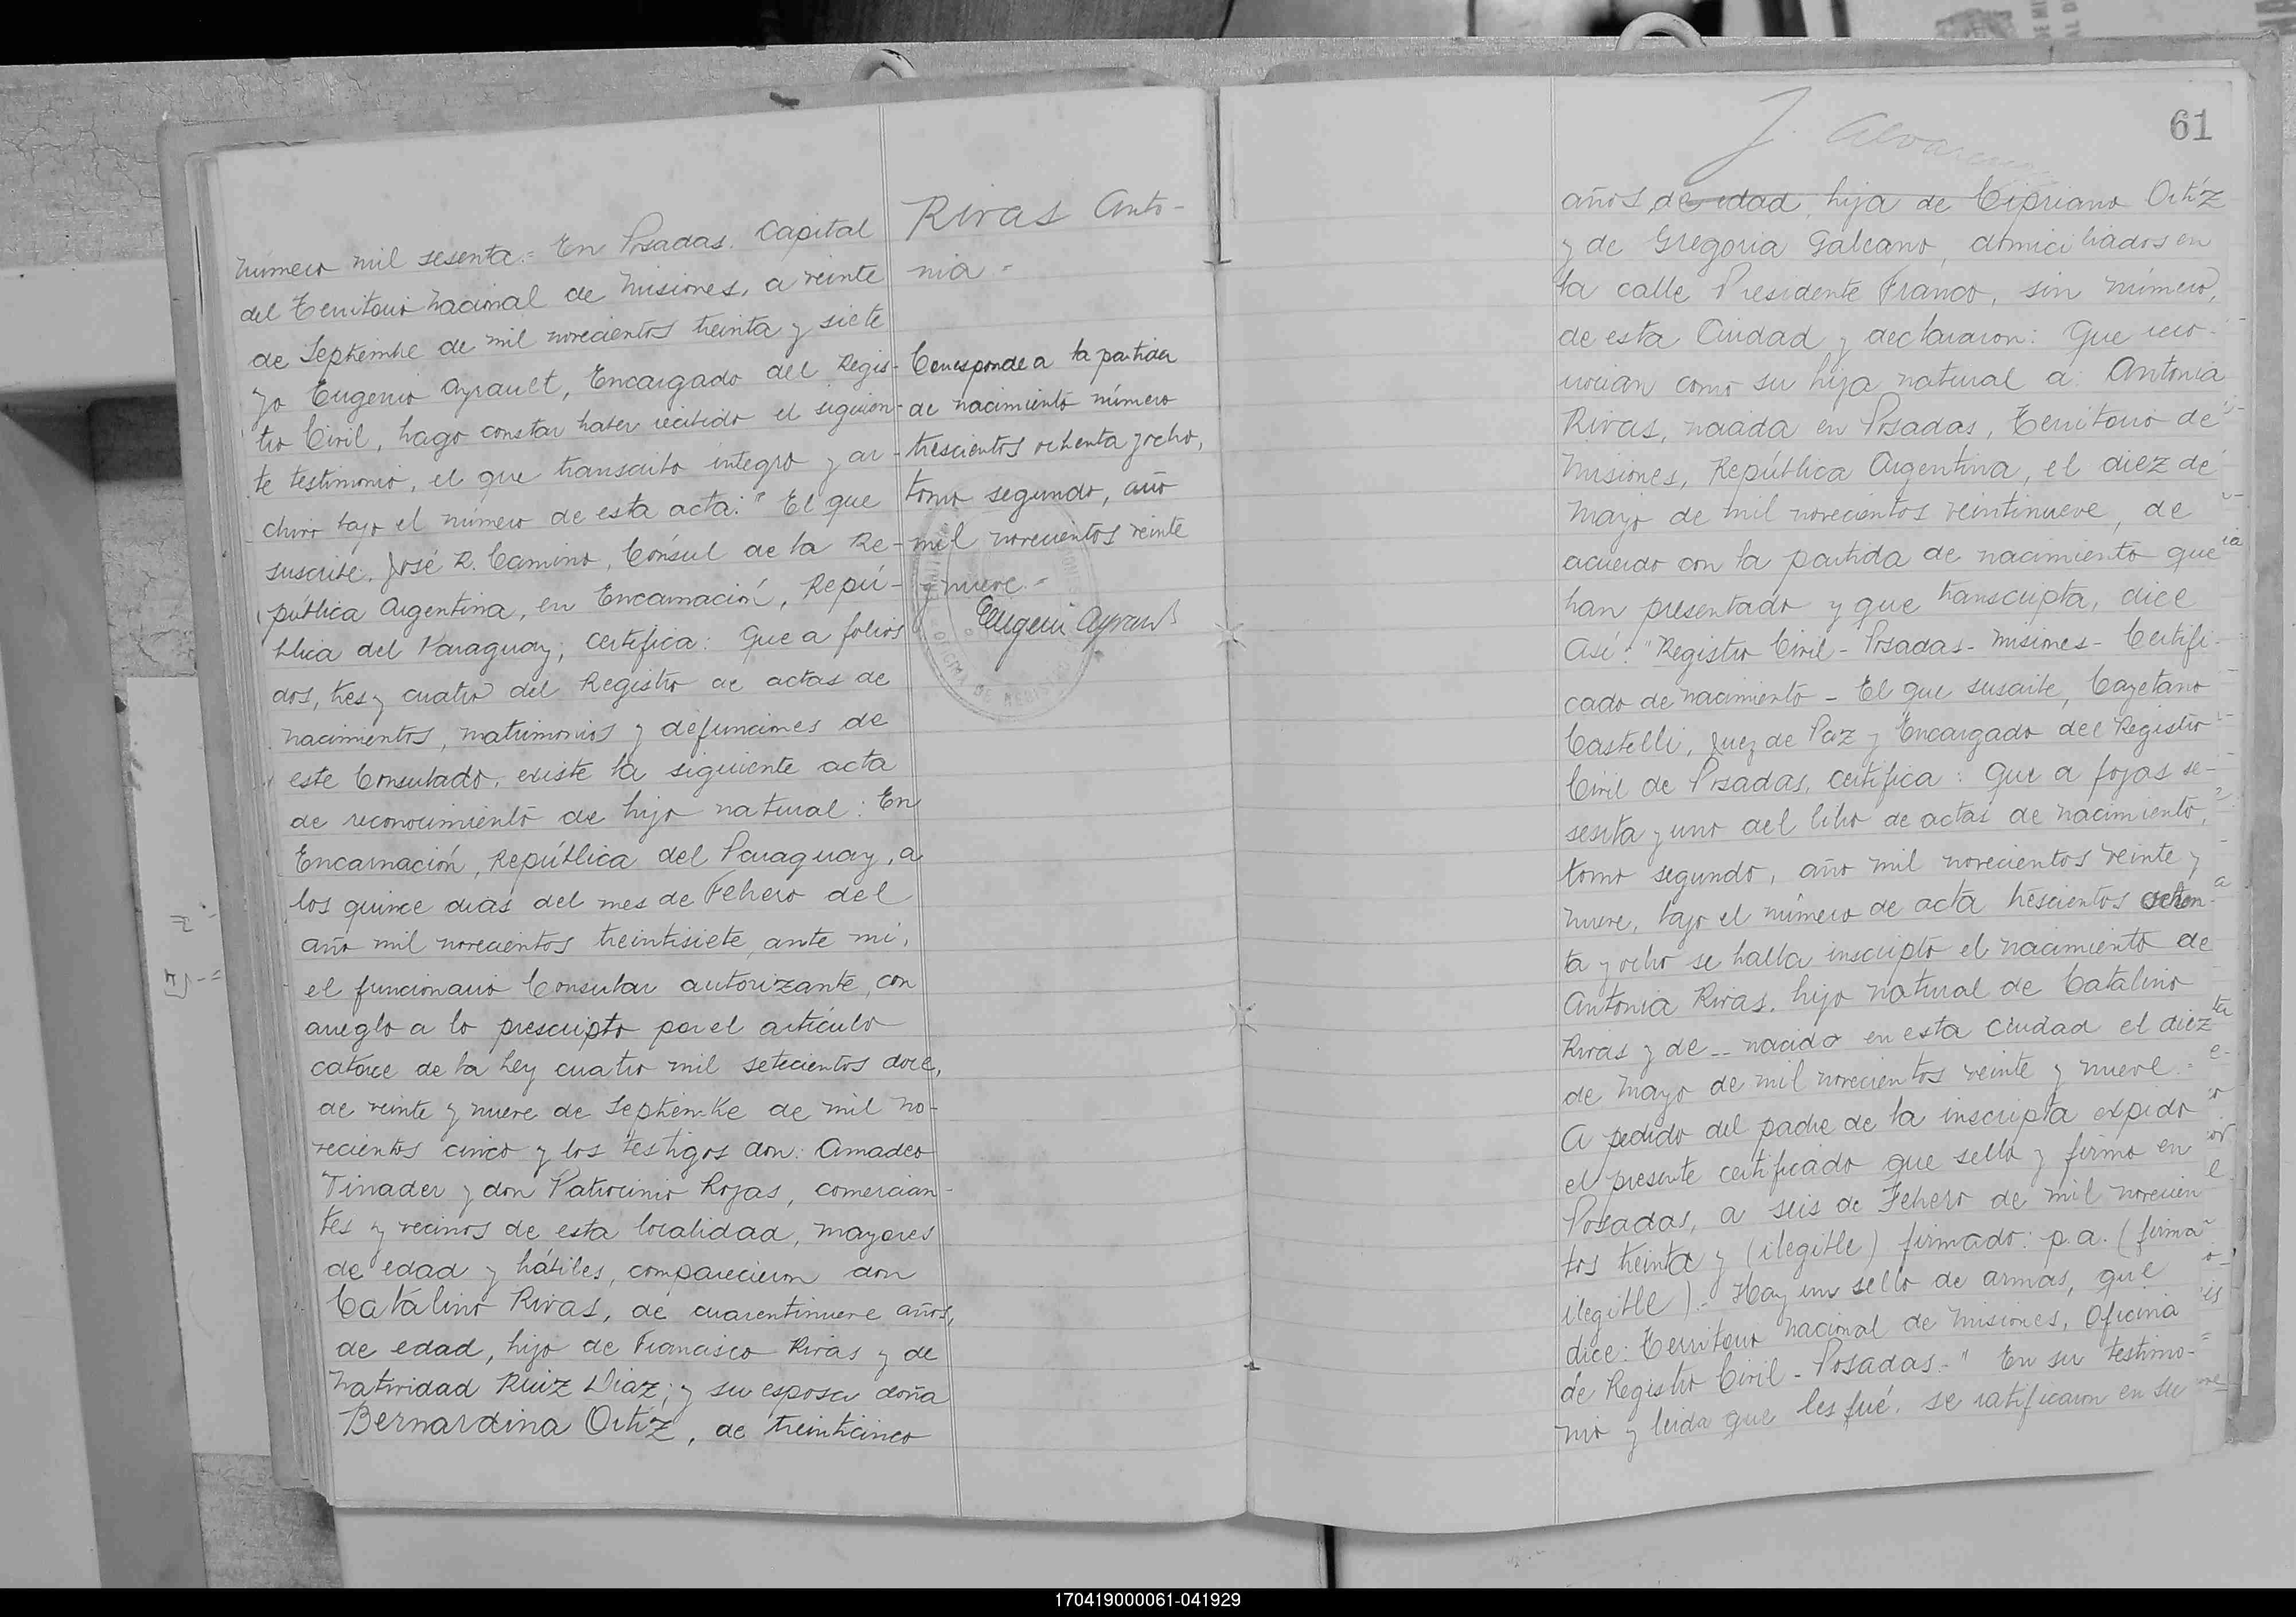 Número mil sesenta.= En Posadas. Capital
del Territorio Nacional de Misiones, a veinte
de Septiembre de mil novecientos treinta y siete
yo Eugenio Ayrault, Encargado del Regis-
tro Civil, hago constar haber recibido el siguien-
te testimonio, el que transcribo íntegro y ar-
chivo bajo el número de esta acta: " El que
suscribe, José R. Camino, Cónsul de la Re-
pública Argentina, en Encarnación, Repú-
blica del Paraguay; certifica: Que a folios
dos, tres y cuatro del Registro de actas de
nacimientos, matrimonios y defunciones de
este Consulado, existe la siguiente acta
de reconocimiento de hijo natural: En
Encarnación, República del Paraguay, a
los quince días del mes de Febrero del
año mil novecientos treintisiete, ante mí,
el funcionario Consular autorizante, con
arreglo a lo prescripto por el artículo
catorce de la Ley cuatro mil setecientos doce,
de veinte y nueve de Septiembre de mil no-
vecientos cinco y los testigos don: Amadeo
Tinader y don Patrocinio Rojas, comercian-
tes y vecinos de esta localidad, mayores
de edad y hábiles, comparecieron don
Catalino Rivas, de cuarentinueve años,
de edad, hijo de Francisco Rivas y de
Natividad Ruiz Diaz; y su esposa doña
Bernardina Ortíz, de treinticinco
Rivas Anto-
nia -
Corresponde a la partida
de nacimiento número
trescientos ochenta y ocho,
tomo segundo, año
mil novecientos veinte
y nueve.-
Eugenio Ayrault
OFICINA DE REGISTRO
J. Alvarenga
61
años de edad, hija de Cipriano Ortíz
y de Gregoria Galeano, domiciliados en
la calle Presidente Franco, sin número,
de esta Ciudad y declararon: Que reco-
nocían como su hija natural a: Antonia
Rivas, nacida en Posadas, Territorio de
Misiones, República Argentina, el diez de
Mayo de mil novecientos veintinueve, de
acuerdo con la partida de nacimiento que
han presentado y que transcripta, dice
Así: "Registro Civil - Posadas - Misiones - Certifi-
cado de nacimiento - El que suscribe, Cayetano
Castelli, Juez de Paz y Encargado del Registro
Civil de Posadas, certifica: Que a fojas se-
senta y uno del libro de actas de nacimiento,
tomo segundo, año mil novecientos veinte y
nueve, bajo el número de acta trescientos ochen-
ta y ocho se halla inscripto el nacimiento de
Antonia Rivas, hijo natural de Catalino
Rivas y de -- nacido en esta Ciudad el diez
de Mayo de mil novecientos veinte y nueve.-
A pedido del padre de la inscripta expido
el presente certificado que sello y firmo en
Posadas, a seis de Febrero de mil novecien
tos treinta y (ilegible) firmado: p.a. (firma
ilegible).- Hay un sello de armas, que
dice: Territorio Nacional de Misiones, Oficina
de Registro Civil - Posadas.-" En su testimo-
nio y leida que les fué, se ratificaron en su
170419000061-041929